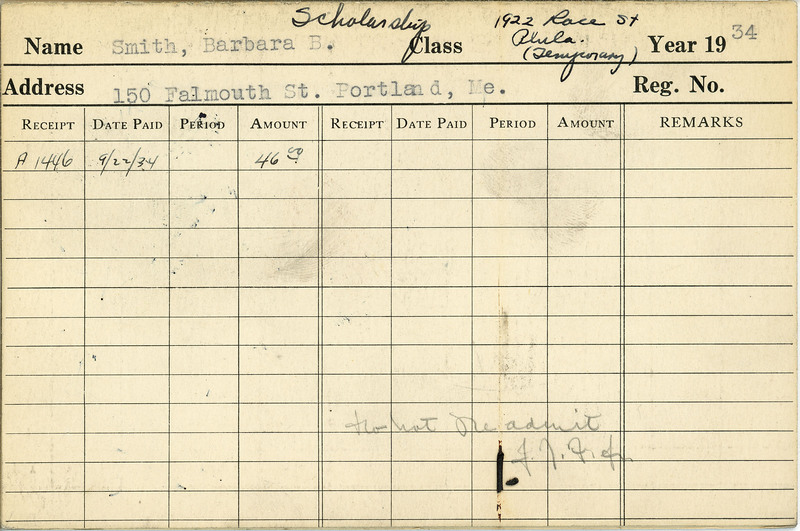 Scholarship 1922 Race St
Name Smith, Barbara B. Class Phila. Year 19 34
(Temporary)
Address 150 Falmouth St. Portland, Me. Reg. No.
RECEIPT DATE PAID PERIOD AMOUNT RECEIPT DATE PAID PERIOD AMOUNT REMARKS
A 1446 9/22/34 46 00
Do not Re admit